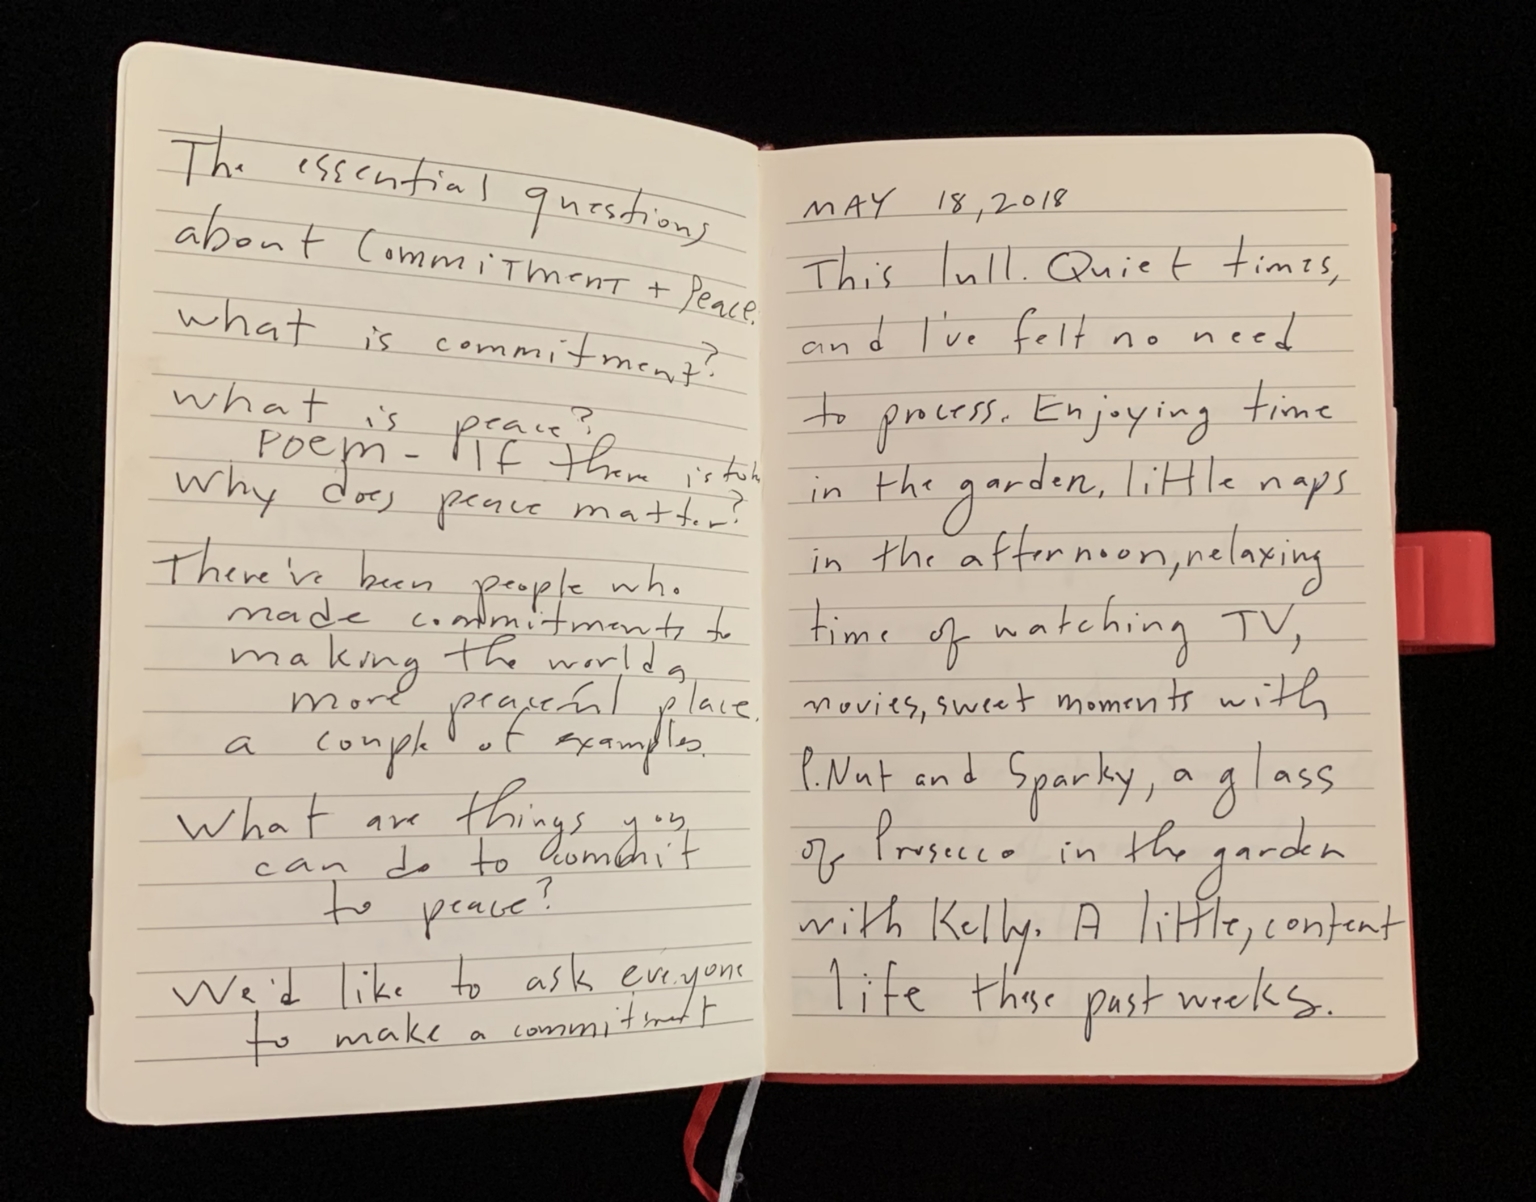 The essential questions
about Commitment + Peace.
what is commitment?
what is peace?
Poem - If there is to be
Why does peace matter?
There've been people who
made commitments to
making the world a
more peaceful place.
a couple of examples.
What are things you
can do to commit
to peace?
We'd like to ask everyone
to make a commitment
MAY 18, 2018
This lull. Quiet times,
and I've felt no need
to process. Enjoying time
in the garden, little naps
in the afternoon, relaxing
time of watching TV,
movies, sweet moments with
P.Nut and Sparky, a glass
of Prosecco in the garden
with Kelly. A little, content
life these past weeks.